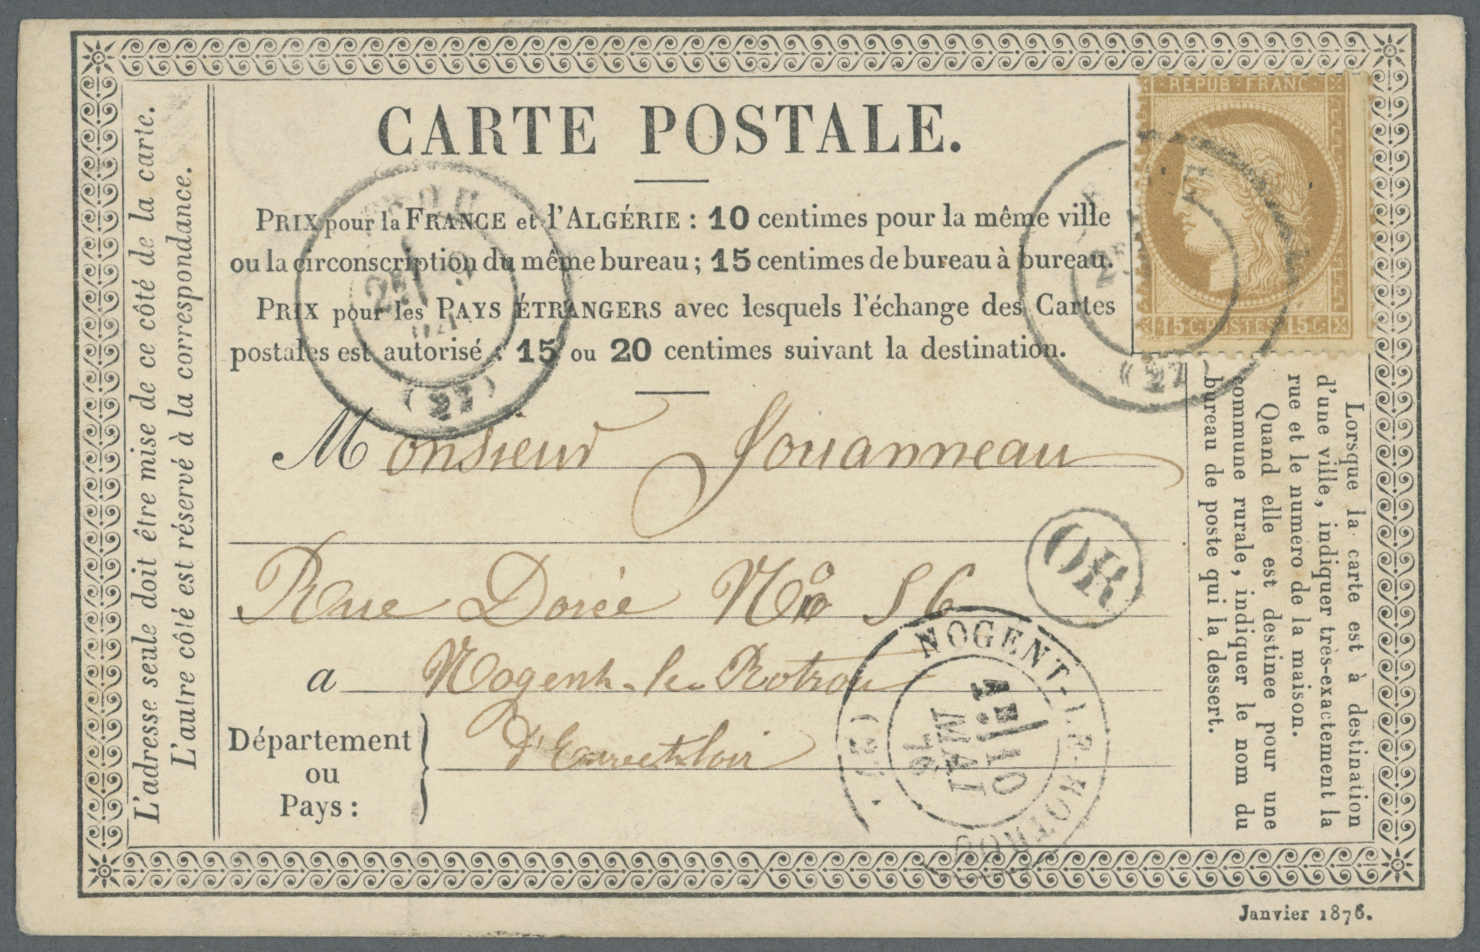 CARTE POSTALE.
REPUB · FRANC ·
15 C · POSTES · 15 C ·
PRIX pour la FRANCE et l'ALGÉRIE : 10 centimes pour la même ville
ou la circonscription du même bureau ; 15 centimes de bureau à bureau.
PRIX pour les PAYS ÉTRANGERS avec lesquels l'échange des Cartes
postales est autorisé : 15 ou 20 centimes suivant la destination.
(27)
(27)
Monsieur Jouanneau
OR
Rue Dorée No 56
a Nogent-le-Rotrou
Département
ou
Pays :
d'Eure et Loir
NOGENT-LE-ROTROU
1E
10
MAI
76
(27)
L'adresse seule doit être mise de ce côté de la carte.
L'autre côté est réservé à la correspondance.
Lorsque la carte est à destination
d'une ville, indiquer très-exactement la
rue et le numero de la maison.
Quand elle est destinée pour une
commune rurale, indiquer le nom du
bureau de poste qui la dessert.
Janvier 1876.